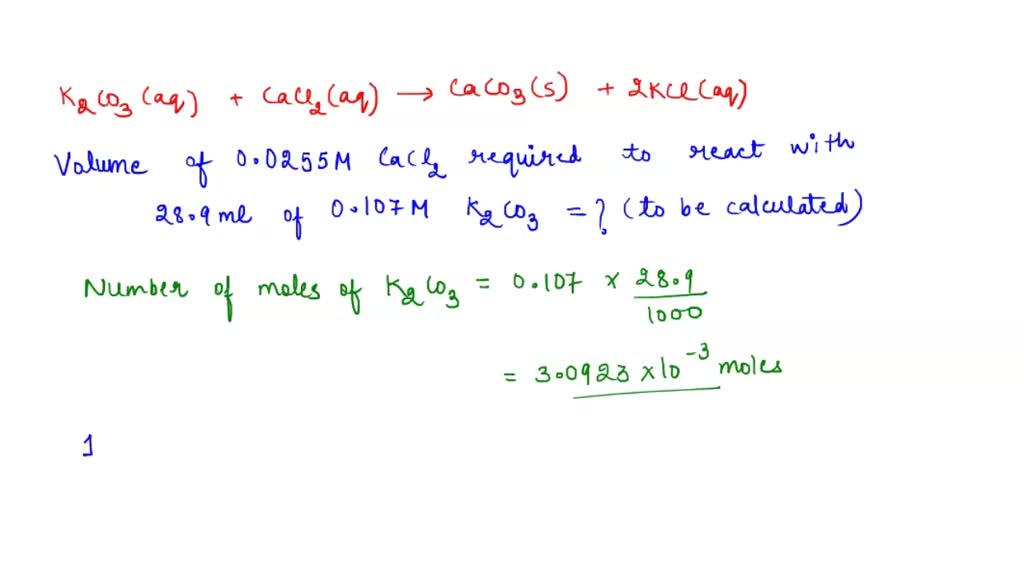 K2CO3(aq) + CaCl2(aq) → CaCO3(s) + 2KCl(aq)
Volume of 0.0255M CaCl2 required to react with
28.9 ml of 0.107 M K2CO3 = ? (to be calculated)
Number of moles of K2CO3 = 0.107 × 28.9
1000
= 3.0923 × 10^-3 moles
1